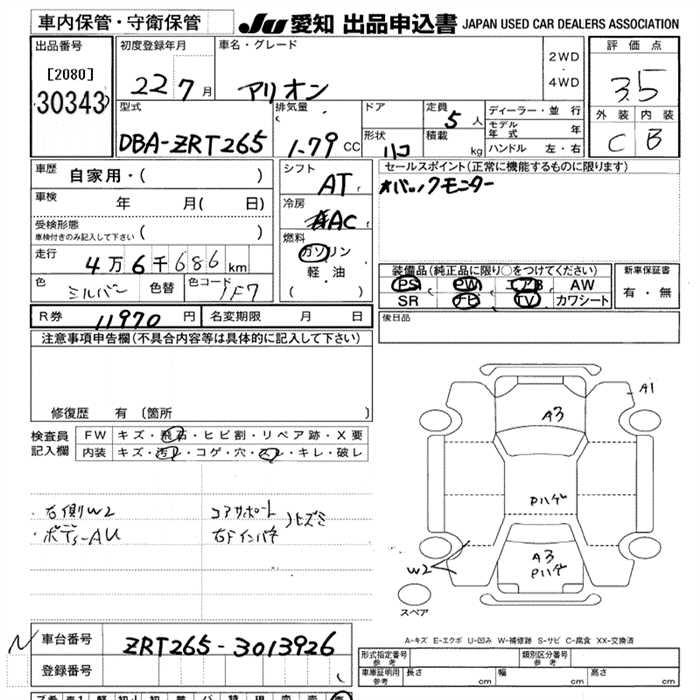 車内保管・守衛保管
JU 愛知 出品申込書 JAPAN USED CAR DEALERS ASSOCIATION
出品番号
[2080]
30343
初度登録年月
22 7 月
車名・グレード
アリオン
2WD
・
4WD
評価点
3.5
外装 内装
C B
型式
DBA-ZRT265
排気量
1.79 CC
ドア
形状
定員
5 人
積載
kg
ディーラー・並行
モデル年式 年
ハンドル 左・右
車歴
自家用・( )
車検
年 月( 日)
受検形態
車検付きのみ記入して下さい ( )
走行
4 万 6 千 686 km
色
シルバー
色替
色コード
1F7
シフト
AT
冷房
AAC
燃料
ガソリン
軽・油
( )
セールスポイント(正常に機能するものに限ります)
バックモニター
装備品(純正品に限り○をつけてください)
PS PW エアB AW
SR ナビ TV カワシート
新車保証書
有・無
R券 11970 円
名変期限 月 日
後日品
注意事項申告欄(不具合内容等は具体的に記入して下さい)
修復歴 有 (箇所 )
検査員
記入欄
FW キズ・飛石・ヒビ割・リペア跡・X要
内装 キズ・汚れ・コゲ・穴・スレ・キレ・破レ
・右側W2
・ボディーAU
コアサポート
右Fインパネ
ヒズミ
A1
A3
Pハゲ
A3
Pハゲ
W2
スペア
A-キズ E-エクボ U-凹み W-補修跡 S-サビ C-腐食 XX-交換済
N
車台番号 ZRT265-3013926
登録番号
形式指定番号
参考
類別区分番号
参考
車庫証明用
参考
長さ cm
幅 cm
高さ cm